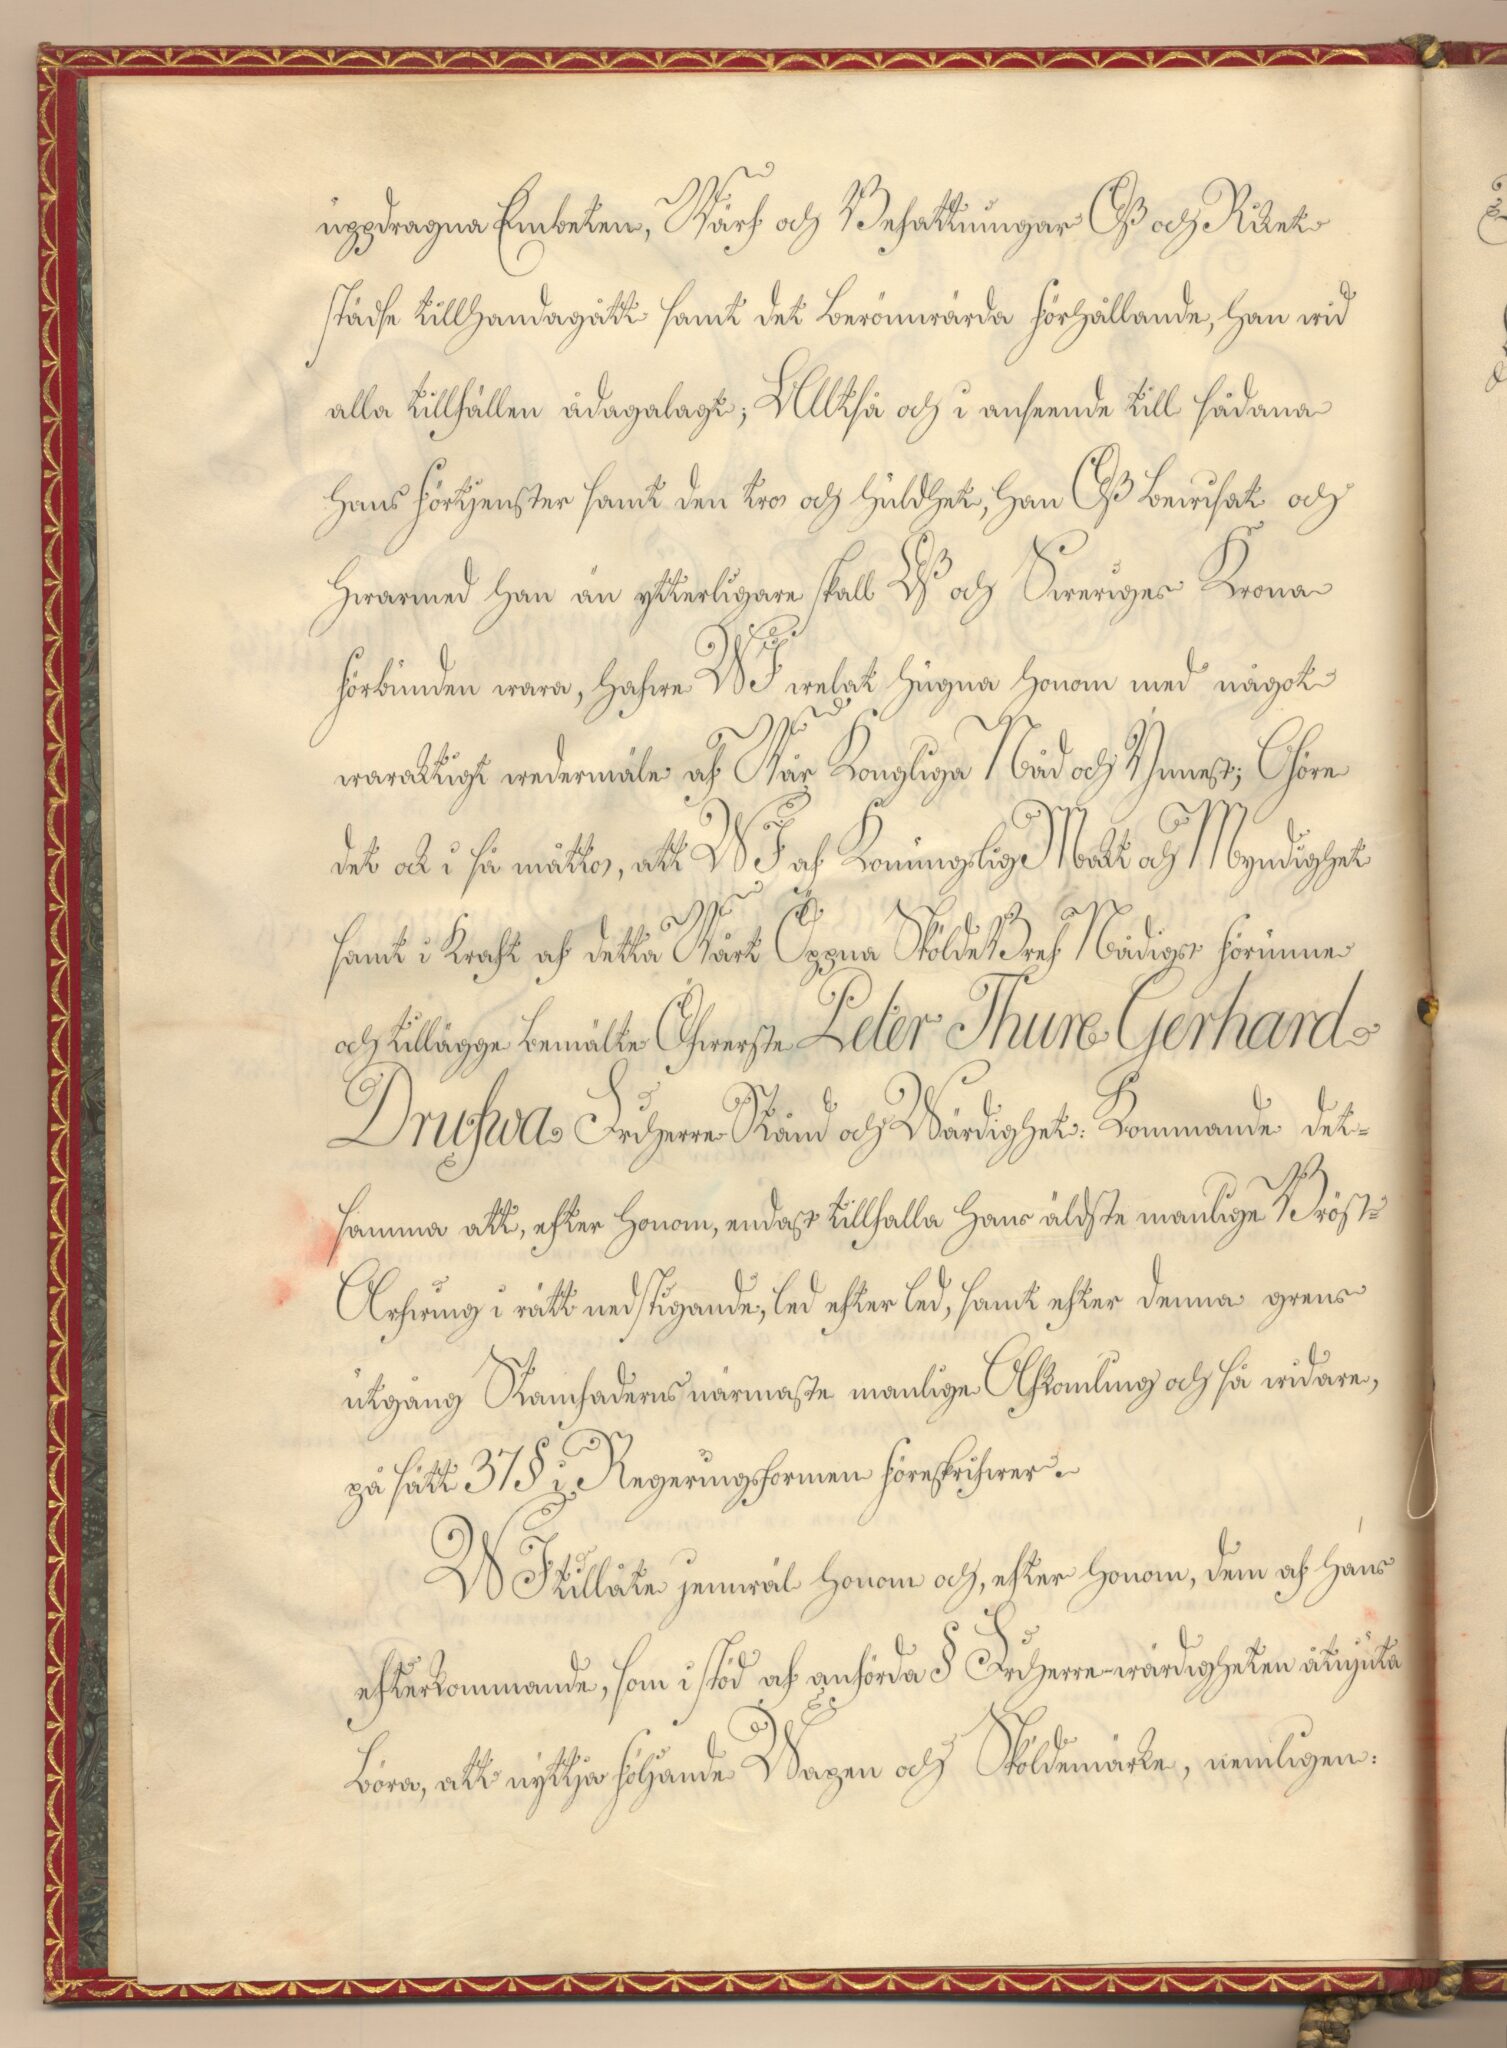 uppdragna Embeten, Wärf och Befattningar Oß och Riket
städse tillhandagått samt det berömwärda förhållande, han wid
alla tillfällen ådagalagt; Alltså och i anseende till sådana
hans förtjenster samt den tro och huldhet, han Oß bewisat och
hwarmed han än ytterligare skall Oß och Sweriges Krona
förbunden wara, hafwe WJ welat hugna honom med något
waraktigt wedermäle af Wår Kongliga Nåd och Ynnest; Göre
det ock i så måtto, att WJ af Konungslig Makt och Myndighet
samt i kraft af detta Wårt Öppna SköldeBref Nådigst förunne
och tillägge bemälte Öfwerste Peter Thure Gerhard
Drufwa Friherre Stånd och Wärdighet: Kommande det-
samma att, efter honom, endast tillfalla Hans äldste manlige Bröst-
Arfwing i rätt nedstigande, led efter led, samt efter denna grens
utgång Stamfaderns närmaste manlige Afkomling och så widare,
på sätt 37 § i Regeringsformen föreskrifwer.
WJ tillåte jemwäl honom och, efter honom, dem af hans
efterkommande, som i stöd af anförda § Friherre-wärdigheten åtnjuta
böra, att nyttja följande Wapen och Sköldemärke, nemligen: